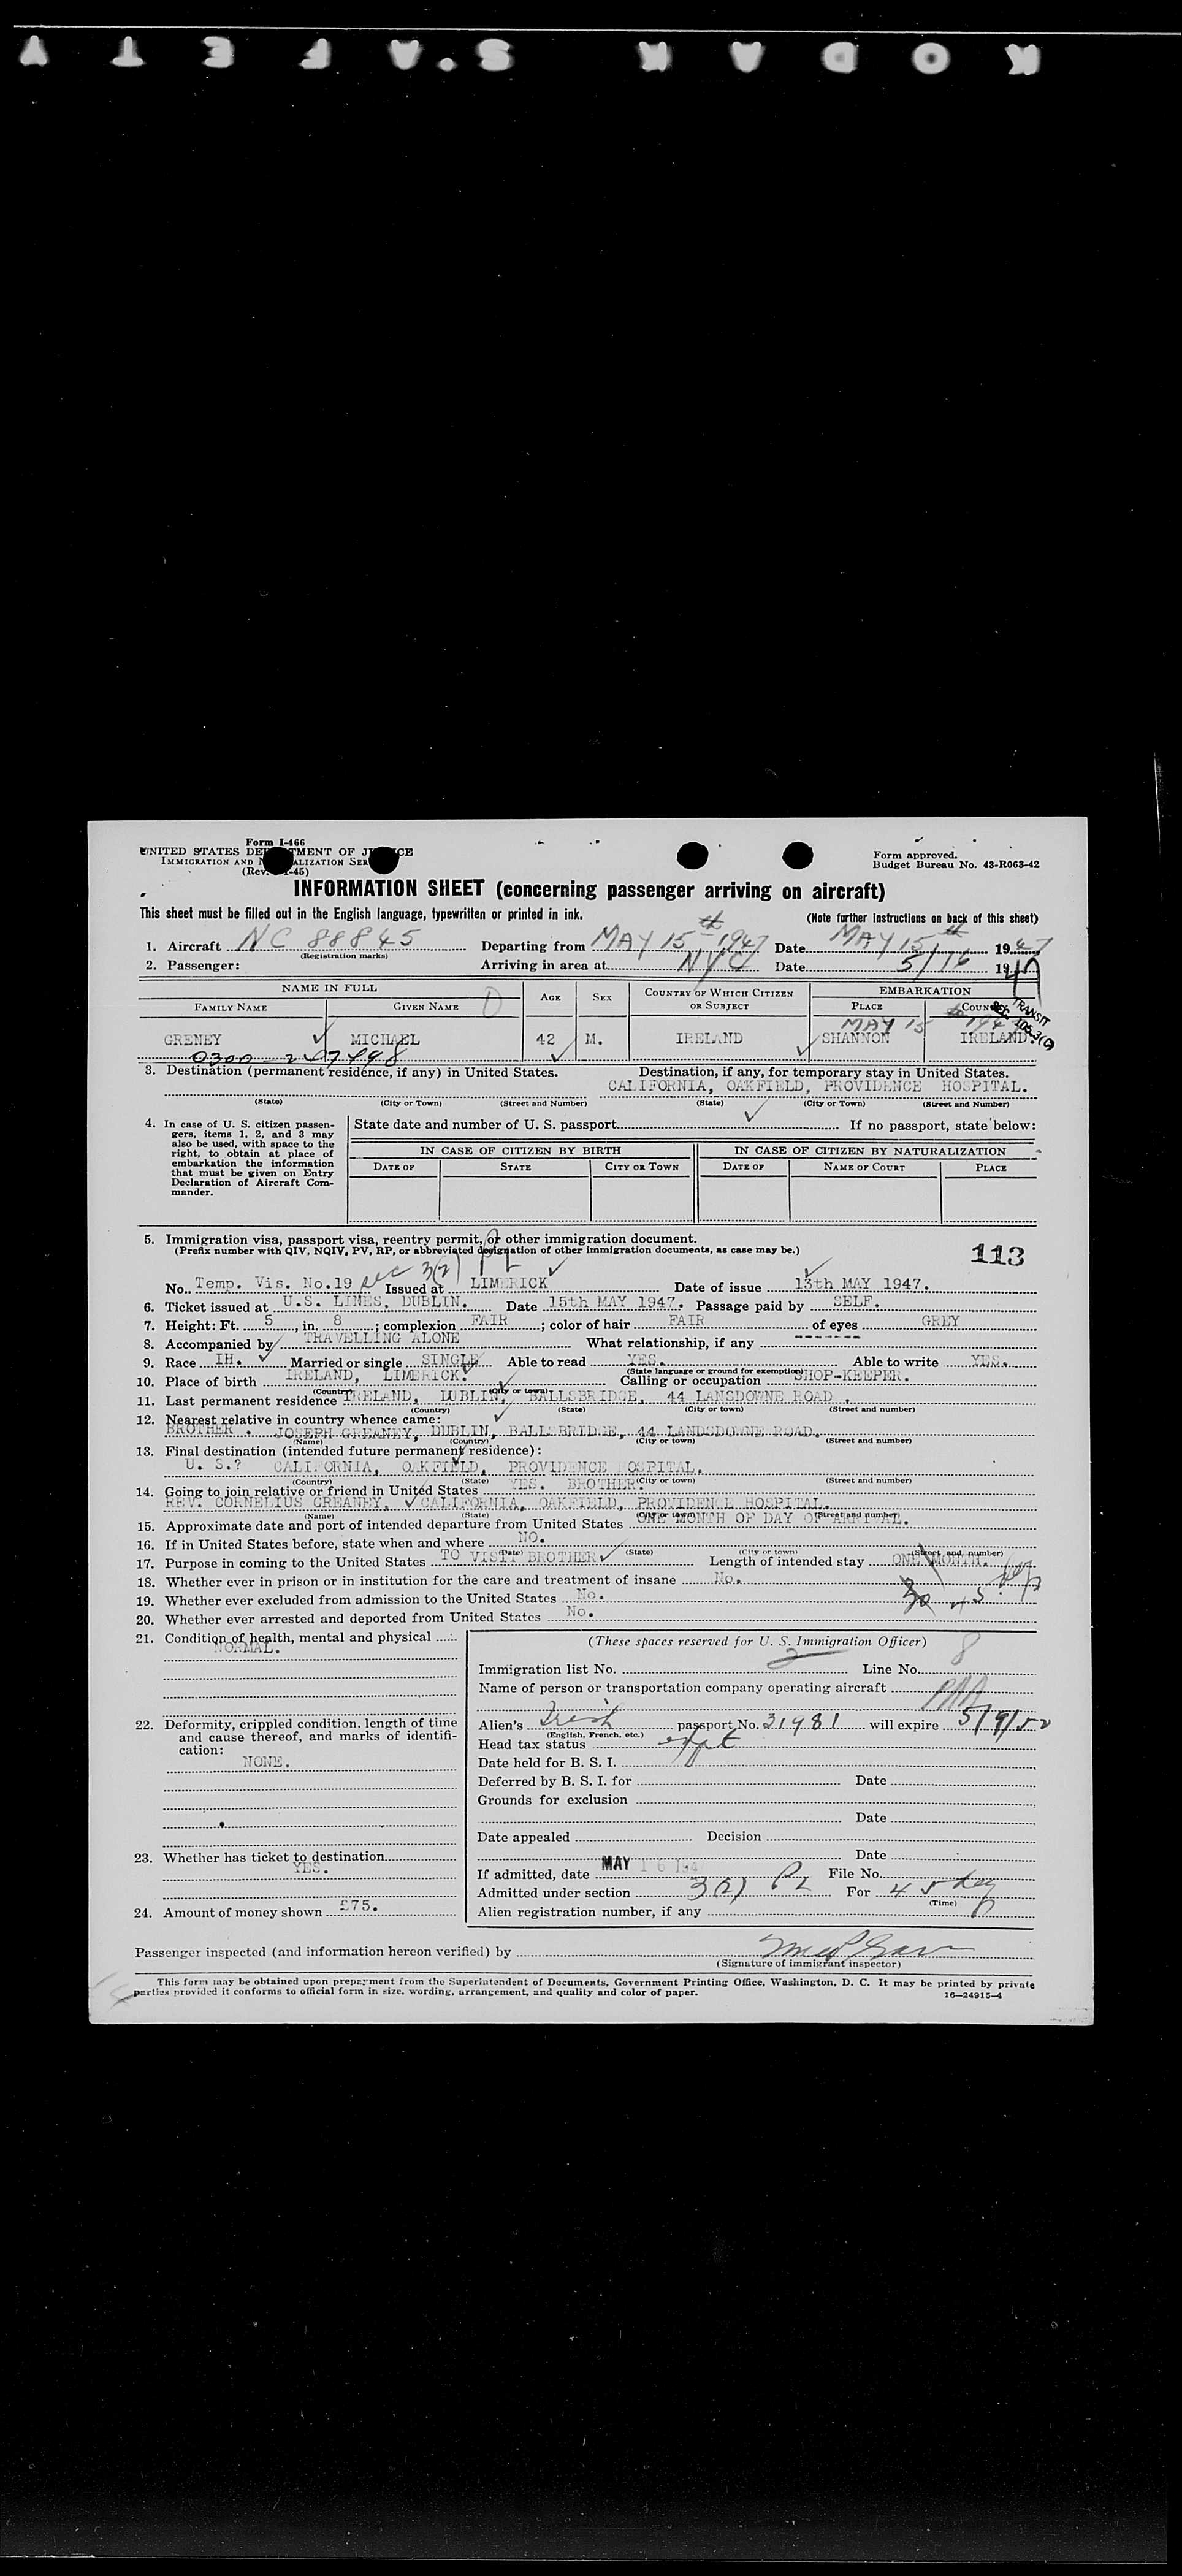 KODAK SAFETY
Form I-466
UNITED STATES DEPARTMENT OF JUSTICE
IMMIGRATION AND NATURALIZATION SER
(Rev. -45)
Form approved.
Budget Bureau No. 43-R063-42
INFORMATION SHEET (concerning passenger arriving on aircraft)
This sheet must be filled out in the English language, typewritten or printed in ink. (Note further instructions on back of this sheet)
1. Aircraft NC 88845 Departing from MAY 15th 1947 Date MAY 15th 1947
(Registration marks)
2. Passenger: Arriving in area at NYC Date 5/16 1947
NAME IN FULL AGE SEX COUNTRY OF WHICH CITIZEN OR SUBJECT EMBARKATION
FAMILY NAME GIVEN NAME PLACE COUN
TRANSIT
SEC. 105.3(G)
MAY 15 1947
GRENEY MICHAEL 42 M. IRELAND SHANNON IRELAND
0300-247498
3. Destination (permanent residence, if any) in United States. Destination, if any, for temporary stay in United States.
CALIFORNIA, OAKFIELD, PROVIDENCE HOSPITAL.
(State) (City or Town) (Street and Number) (State) (City or Town) (Street and Number)
4. In case of U. S. citizen passengers, items 1, 2, and 3 may also be used, with space to the right, to obtain at place of embarkation the information that must be given on Entry Declaration of Aircraft Commander.
State date and number of U. S. passport If no passport, state below:
IN CASE OF CITIZEN BY BIRTH IN CASE OF CITIZEN BY NATURALIZATION
DATE OF STATE CITY OR TOWN DATE OF NAME OF COURT PLACE
5. Immigration visa, passport visa, reentry permit, or other immigration document.
(Prefix number with QIV, NQIV, PV, RP, or abbreviated designation of other immigration documents, as case may be.)
113
No. Temp. Vis. No.19 sec 3(2) Issued at LIMERICK Date of issue 13th MAY 1947.
6. Ticket issued at U.S. LINES, DUBLIN. Date 15th MAY 1947. Passage paid by SELF.
7. Height: Ft. 5, in. 8; complexion FAIR; color of hair FAIR of eyes GREY
8. Accompanied by TRAVELLING ALONE What relationship, if any -------
9. Race IH. Married or single SINGLE Able to read YES. Able to write YES.
(State language or ground for exemption)
10. Place of birth IRELAND, LIMERICK. Calling or occupation SHOP-KEEPER.
(Country) (City or town)
11. Last permanent residence IRELAND, DUBLIN, BALLSBRIDGE, 44 LANSDOWNE ROAD,
(Country) (State) (City or town) (Street and number)
12. Nearest relative in country whence came:
BROTHER. JOSEPH GREANEY, DUBLIN, BALLSBRIDGE, 44 LANDSDOWNE ROAD.
(Name) (Country) (City or town) (Street and number)
13. Final destination (intended future permanent residence):
U. S.? CALIFORNIA, OAKFIELD, PROVIDENCE HOSPITAL.
(Country) (State) (City or town) (Street and number)
14. Going to join relative or friend in United States YES. BROTHER.
REV. CORNELIUS GREANEY, CALIFORNIA, OAKFIELD, PROVIDENCE HOSPITAL.
(Name) (State) (City or town) (Street and number)
15. Approximate date and port of intended departure from United States ONE MONTH OF DAY OF ARRIVAL.
16. If in United States before, state when and where NO.
(Date) (State) (City or town) (Street and number)
17. Purpose in coming to the United States TO VISIT BROTHER Length of intended stay ONE MONTH.
18. Whether ever in prison or in institution for the care and treatment of insane No.
30 45
19. Whether ever excluded from admission to the United States No.
20. Whether ever arrested and deported from United States No.
21. Condition of health, mental and physical
NORMAL.
(These spaces reserved for U. S. Immigration Officer)
Immigration list No. 2 Line No. 8
Name of person or transportation company operating aircraft PAA
22. Deformity, crippled condition, length of time and cause thereof, and marks of identification:
NONE.
Alien's Irish passport No. 31981 will expire 5/9/52
(English, French, etc.)
Head tax status expt
Date held for B. S. I.
Deferred by B. S. I. for Date
Grounds for exclusion
Date
Date appealed Decision
Date
23. Whether has ticket to destination
YES.
If admitted, date MAY 16 194 File No.
Admitted under section 3(2) For 45 day
(Time)
24. Amount of money shown £75.
Alien registration number, if any
Passenger inspected (and information hereon verified) by
(Signature of immigrant inspector)
This form may be obtained upon prepayment from the Superintendent of Documents, Government Printing Office, Washington, D. C. It may be printed by private
parties provided it conforms to official form in size, wording, arrangement, and quality and color of paper.
16—24915-4